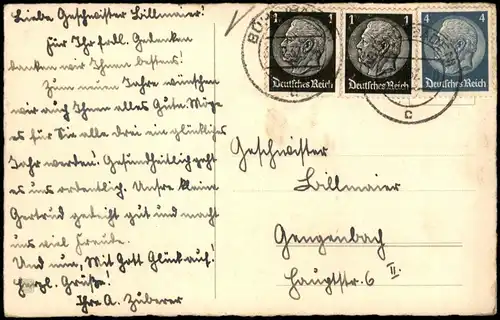 Liebe Geschwister Billmaier!
Für Ihr frdl. Gedenken
danken wir Ihnen bestens!
Zum neuen Jahre wünschen
wir auch Ihnen alles Gute. Möge
es für Sie alle drei ein glückliches
Jahr werden! Gesundheitlich geht
es uns ordentlich. Unsre kleine
Gertrud gedeiht gut und macht
uns viel Freude.
Und nun, Mit Gott Glück auf!
Herzl. Grüße!
Ihre A. Zuberer
1 1
Deutsches Reich
1 1
Deutsches Reich
4 4
Deutsches Reich
c
Geschwister
Billmaier
Gengenbach
Hauptstr. 6 II.